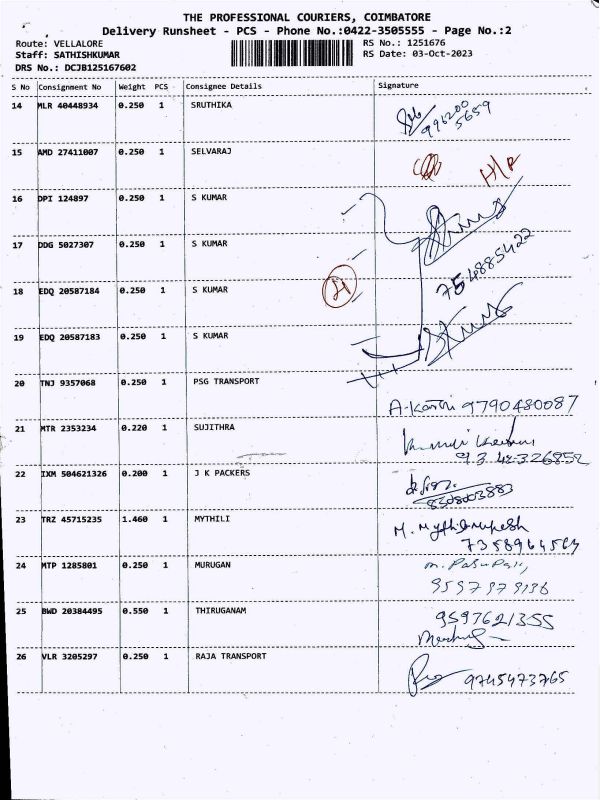 THE PROFESSIONAL COURIERS, COIMBATORE
Delivery Runsheet - PCS - Phone No.:0422-3505555 - Page No.:2
Route: VELLALORE RS No.: 1251676
Staff: SATHISHKUMAR RS Date: 03-Oct-2023
DRS No.: DCJB125167602
S No Consignment No Weight PCS Consignee Details Signature
14 MLR 40448934 0.250 1 SRUTHIKA
996200
5659
15 AMD 27411007 0.250 1 SELVARAJ H/R
16 DPI 124897 0.250 1 S KUMAR
17 DDG 5027307 0.250 1 S KUMAR
7548885422
18 EDQ 20587184 0.250 1 S KUMAR
19 EDQ 20587183 0.250 1 S KUMAR
20 TNJ 9357068 0.250 1 PSG TRANSPORT
9790480087
21 MTR 2353234 0.220 1 SUJITHRA
22 IXM 504621326 0.200 1 J K PACKERS
8308003883
23 TRZ 45715235 1.460 1 MYTHILI
24 MTP 1285801 0.250 1 MURUGAN
25 BWD 20384495 0.550 1 THIRUGANAM
9597621355
26 VLR 3205297 0.250 1 RAJA TRANSPORT
9745473765